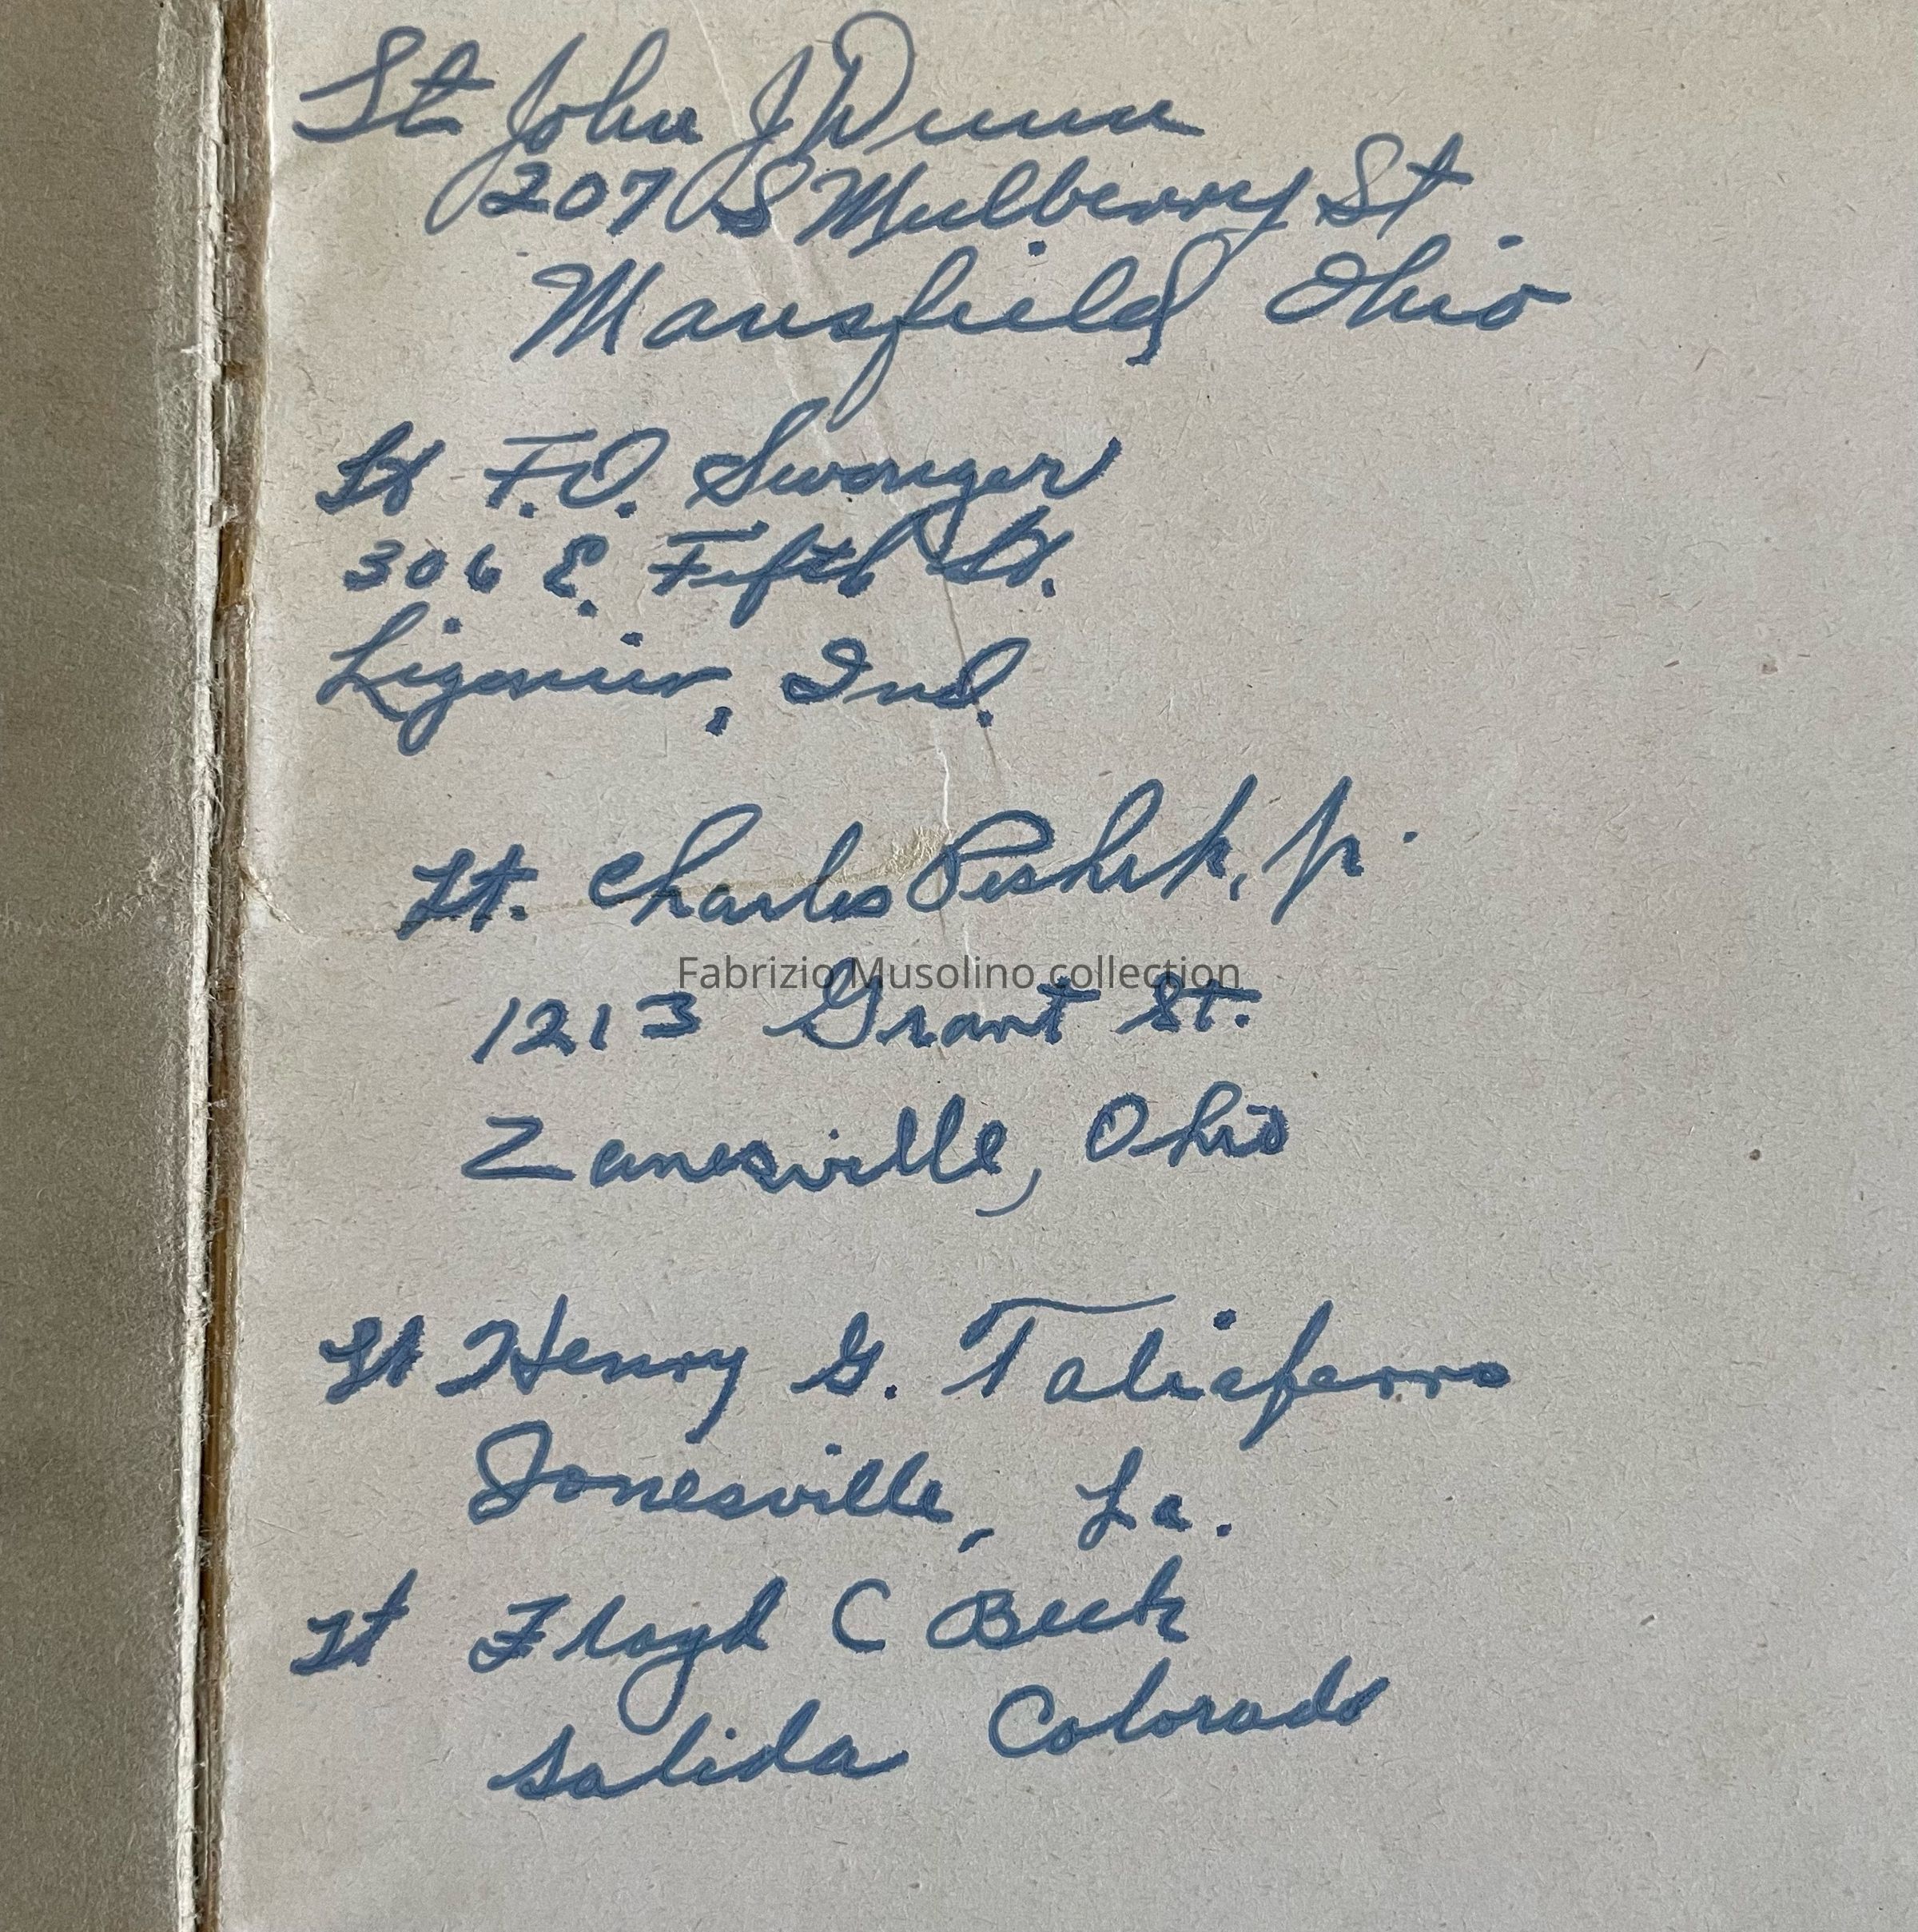 Lt John J Dunn
207 S Mulberry St
Mansfield Ohio
Lt F.O. Swonger
306 E. Fifth St.
Ligonier, Ind.
Lt. Charles Peshek, Jr.
Fabrizio Musolino collection
1213 Grant St.
Zanesville, Ohio
Lt Henry G. Taliaferro
Jonesville, La.
Lt Floyd C Beck
Salida Colorado